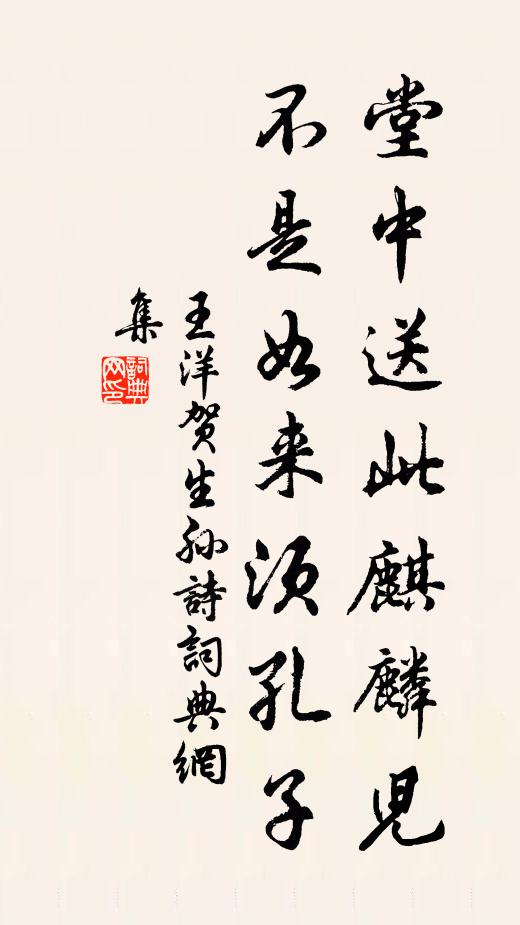 堂中送此麒麟児
不是如来须孔子
王洋贺生孙詩詞典網
集
詞典網印